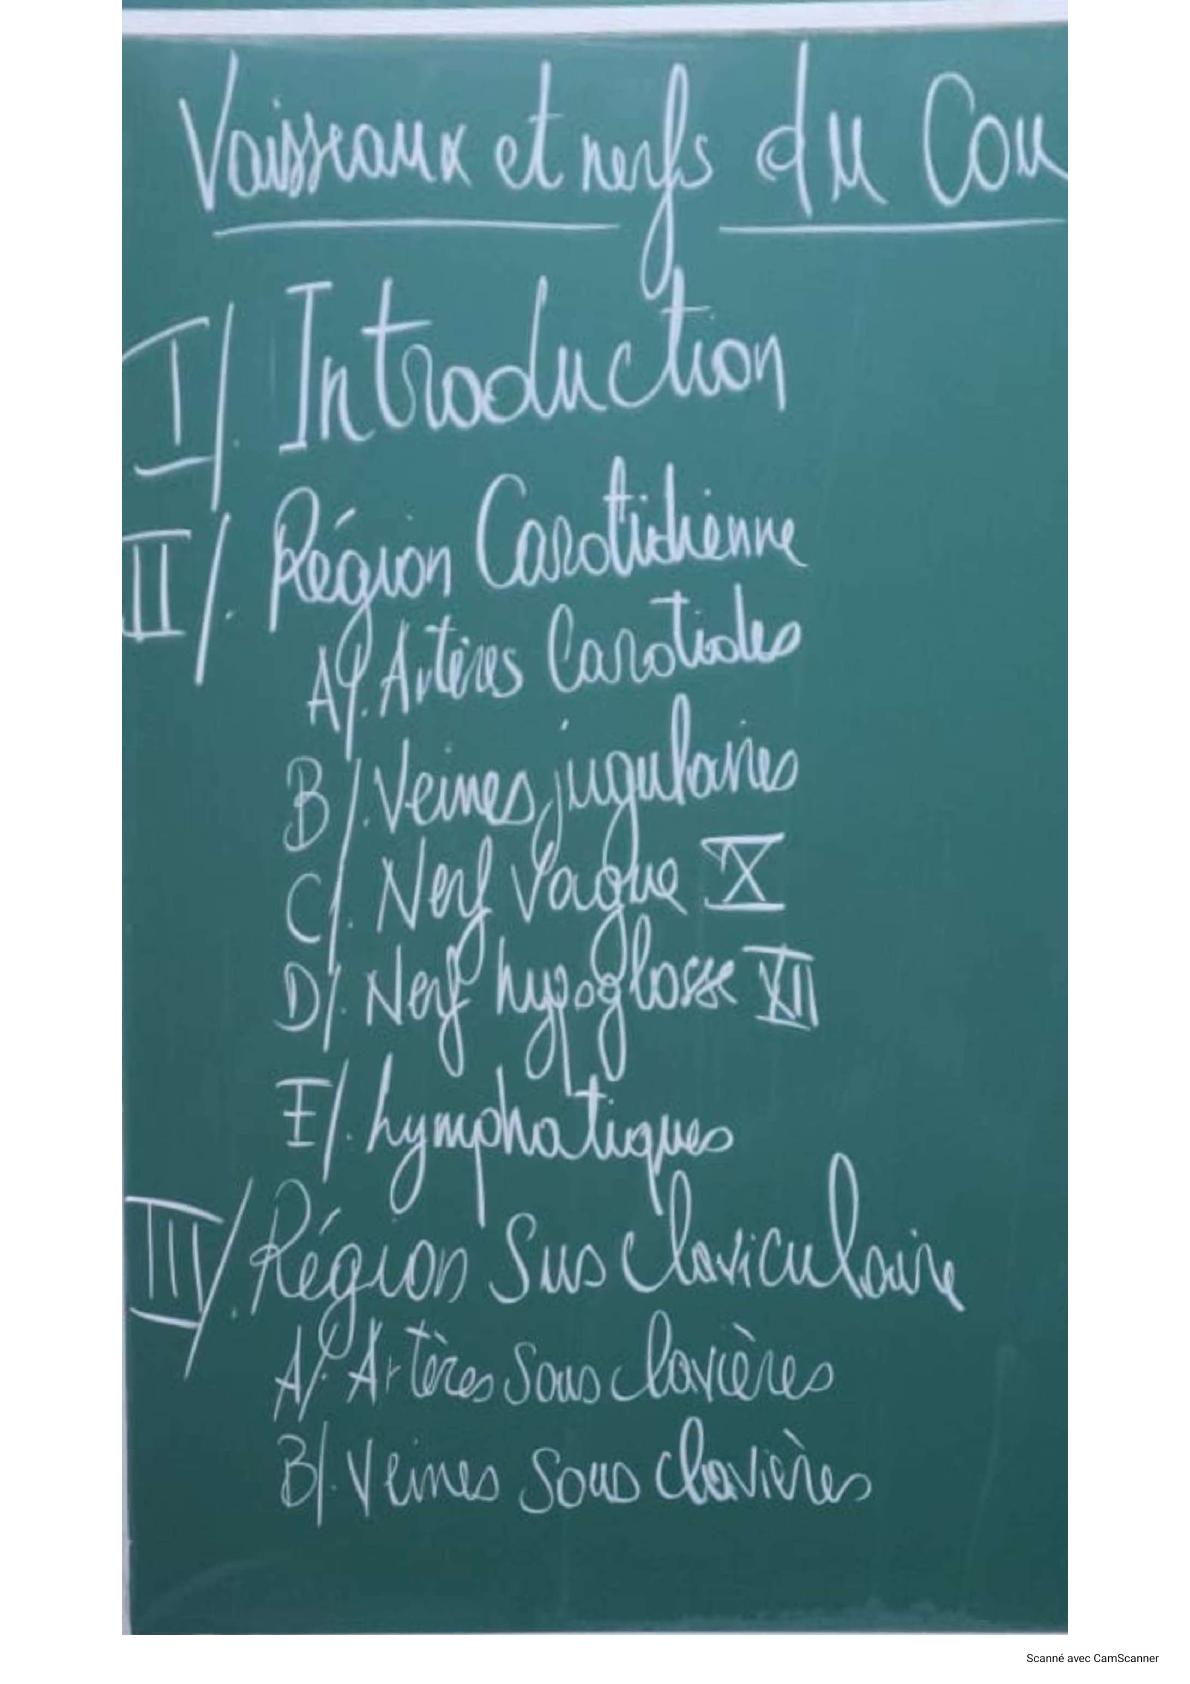 Vaisseaux et nerfs du Cou
I/. Introduction
II/. Région Carotidienne
A/. Artères Carotides
B/. Veines jugulaires
C/. Nerf Vague X
D/. Nerf hypoglosse XII
E/. Lymphatiques
III/. Région Sus claviculaire
A/. Artères Sous clavières
B/. Veines Sous clavières
Scanné avec CamScanner